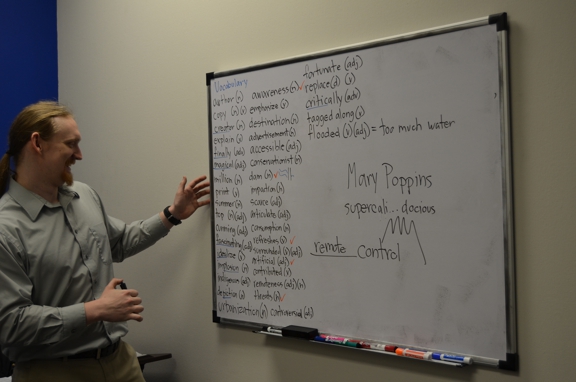 Vocabulary
author (n)
copy (n) (v)
creator (n)
explain (v)
finally (adv)
magical (adj)
million (n)
print (v)
summer (n)
top (n)(adj)
amazing (adj)
fascinating (adj)
idealize (v)
explosion (n)
indigenous (adj)
depiction (n)
urbanization (n)
awareness (n) ✓
emphasize (v)
destination (n)
advertisement (n)
accessible (adj)
conservationist (n)
dam (n) ✓
impaction (n)
scarce (adj)
articulate (adj)
consumption (n)
refreshers (n) ✓
surrounded (v)(adj)
artificial (adj) ✓
contributed (v)
threats (n) ✓
controversial (adj)
fortunate (adj)
replace(d) (v)
critically (adv)
tagged along (v)
flooded (v)(adj) = too much water
Mary Poppins
supercali...docious
remote control